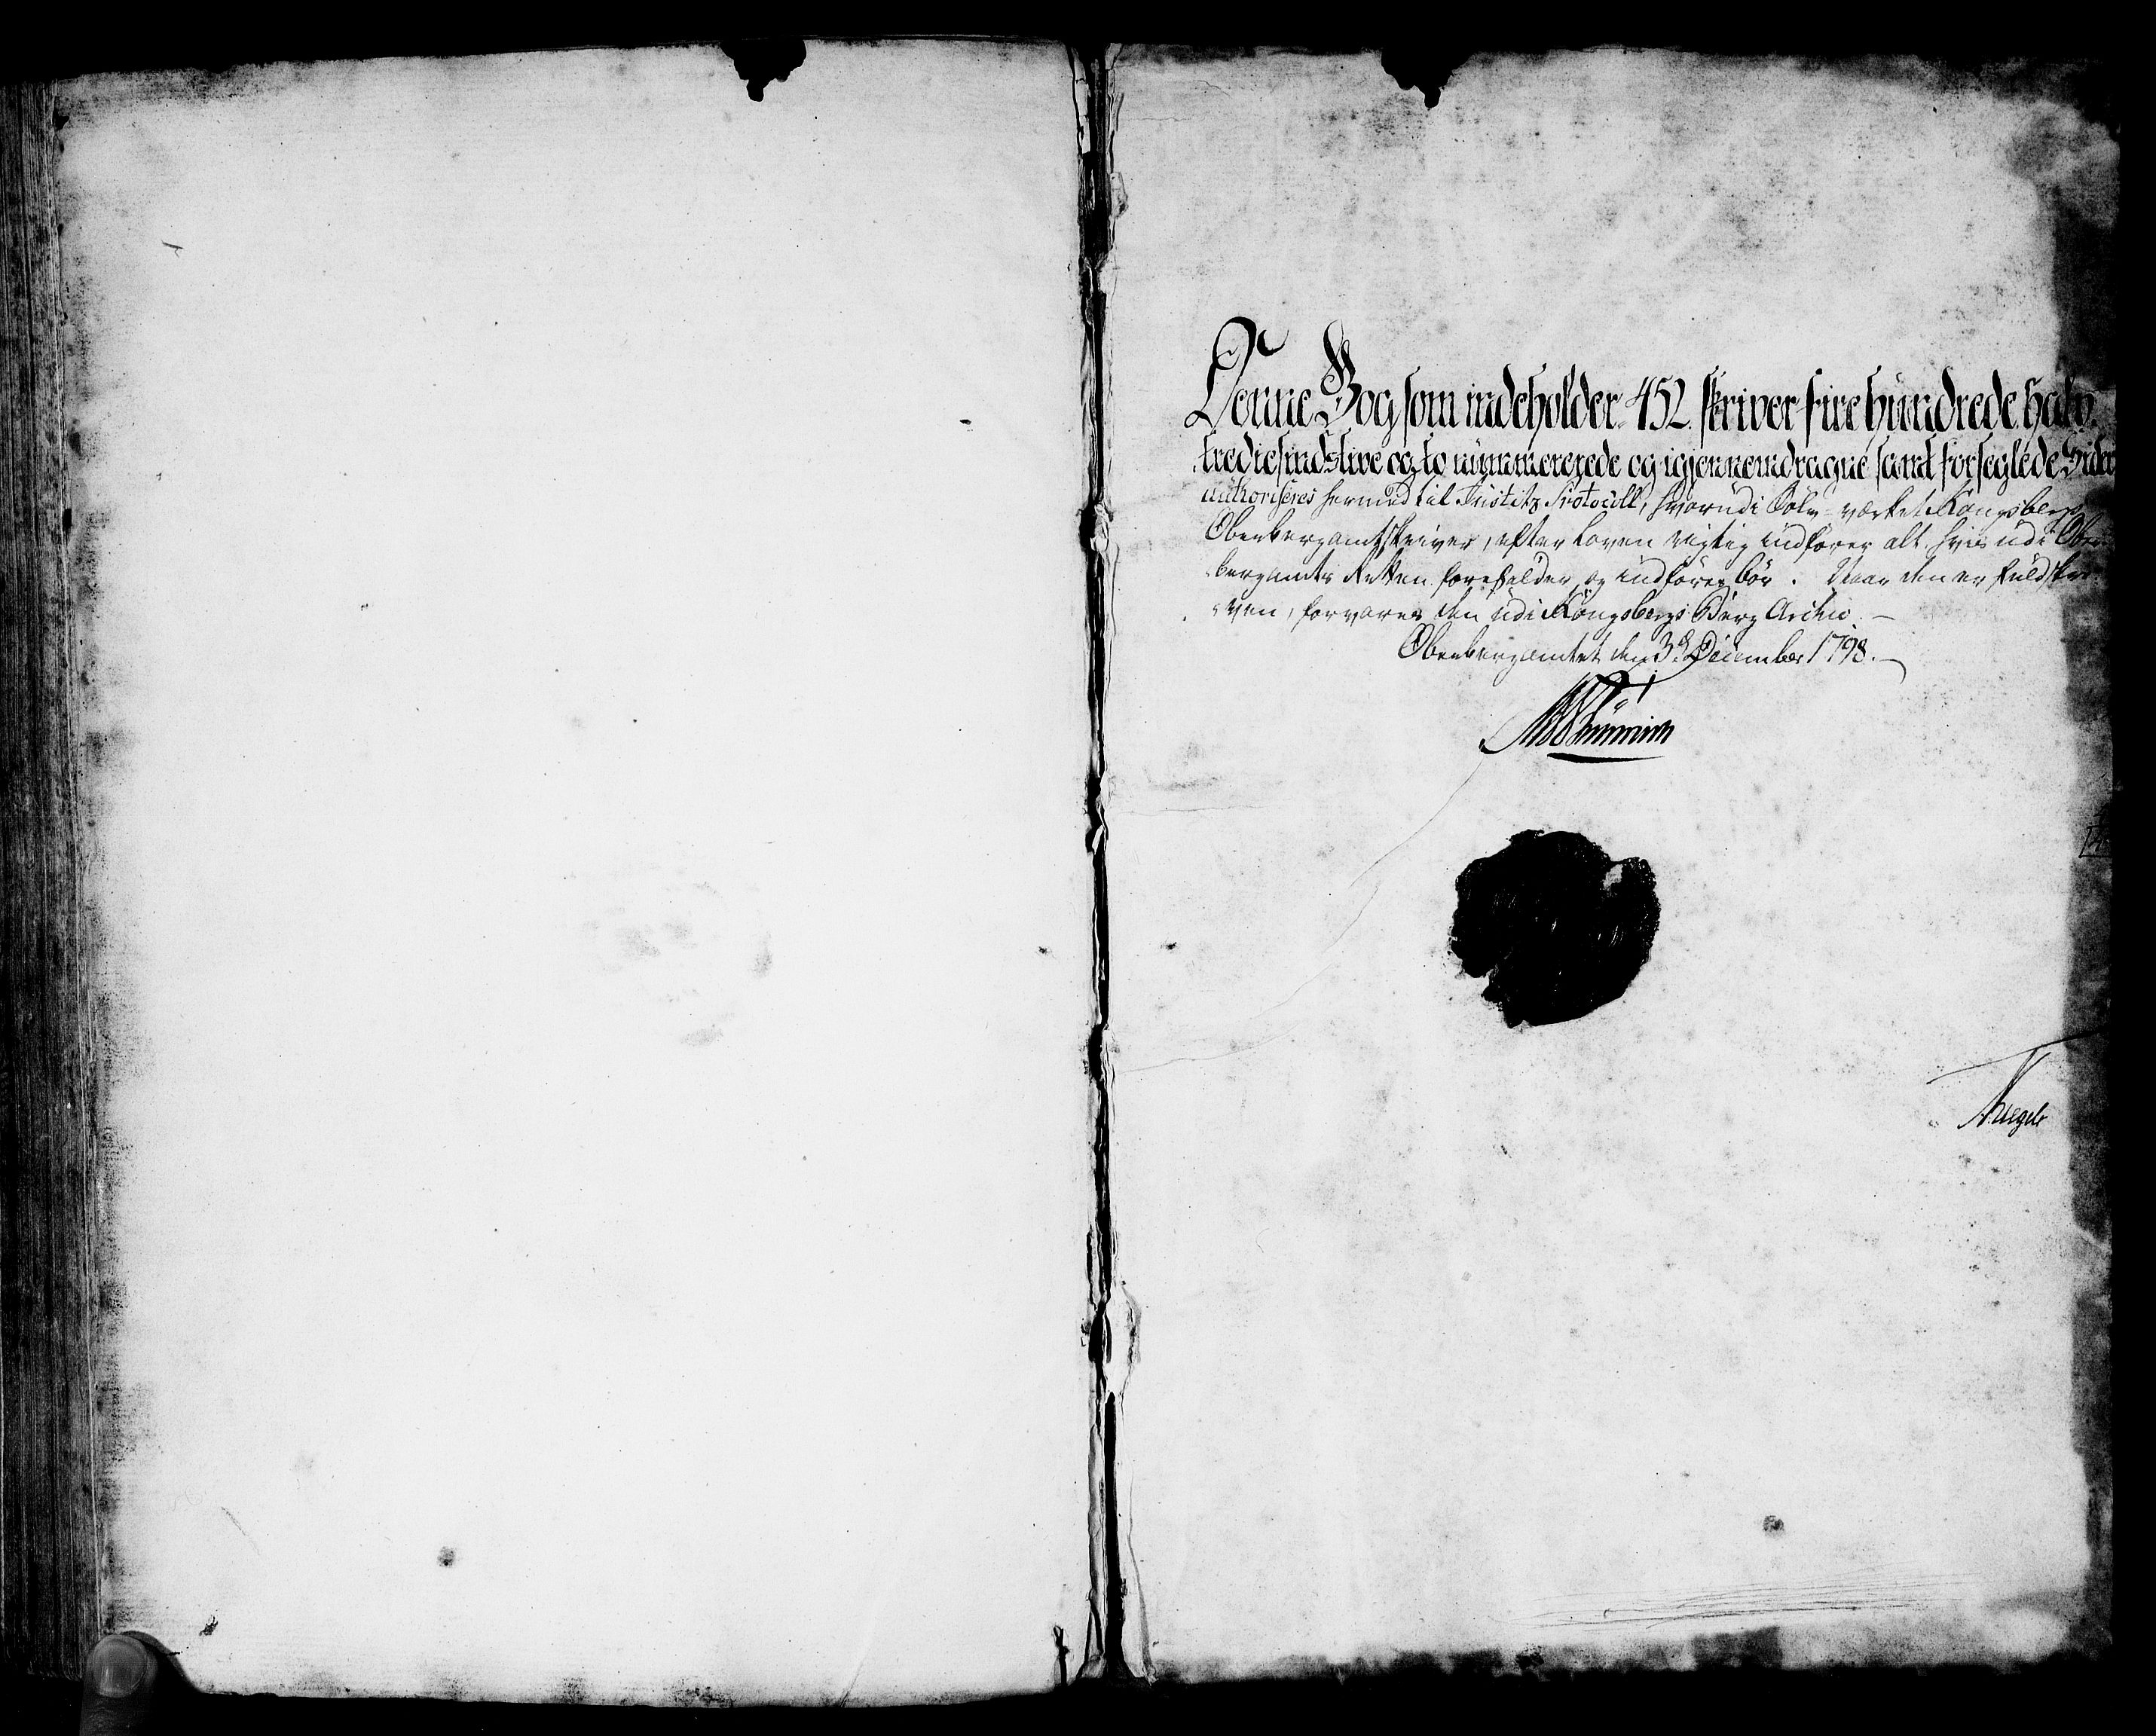 Denne Bog som indeholder 452 skriver fire hundrede halv
trediesindstive og to nummererede og igjennemdragne samt forseglede Sider
authoriseres hermed til Justitz Protocoll, hvorudi Sølv-værket Kongsbergs
Oberbergamtskriver, efter Loven rigtig indfører alt hvis udi Ober
bergamts Retten forefalder og indføres bør. Naar den er fuldskre
ven, forvares den udi Kongsbergs Berg Archiv. —
Oberbergamtet den 3d December 1798. —